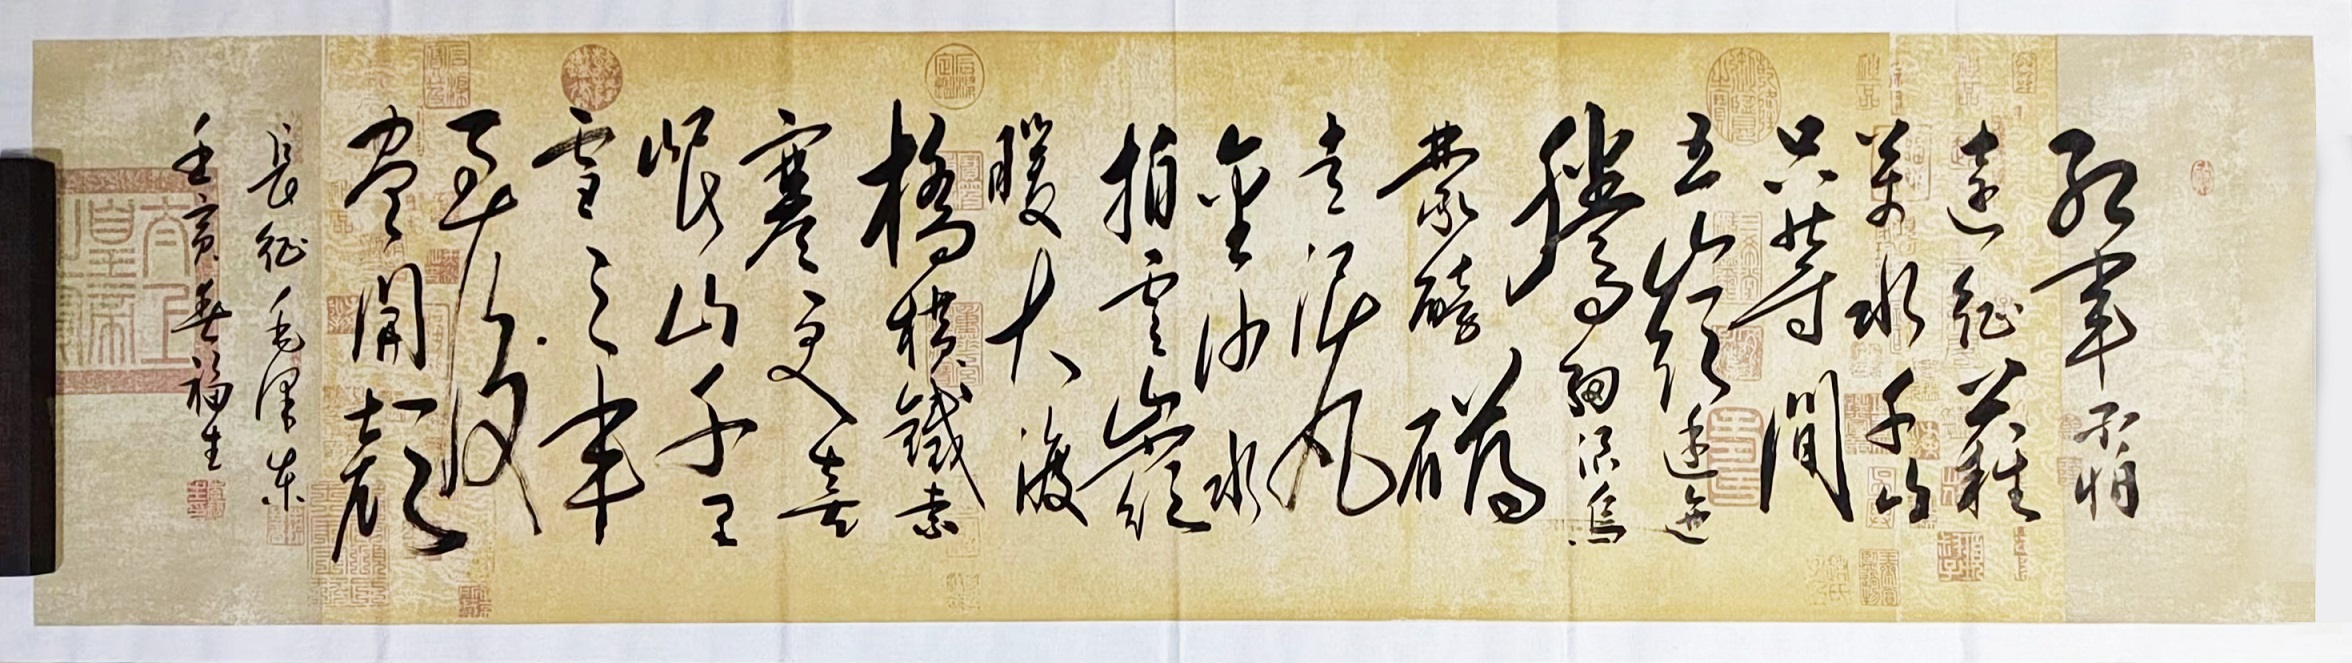 紅軍不怕
遠征難
萬水千山
只等閒
五嶺逶迤
騰細浪烏
蒙磅礴
走泥丸
金沙水
拍雲崖
暖大渡
橋橫鐵索
寒更喜
岷山千里
雪三軍
過後
盡開顏
長征毛澤東
壬寅春福生